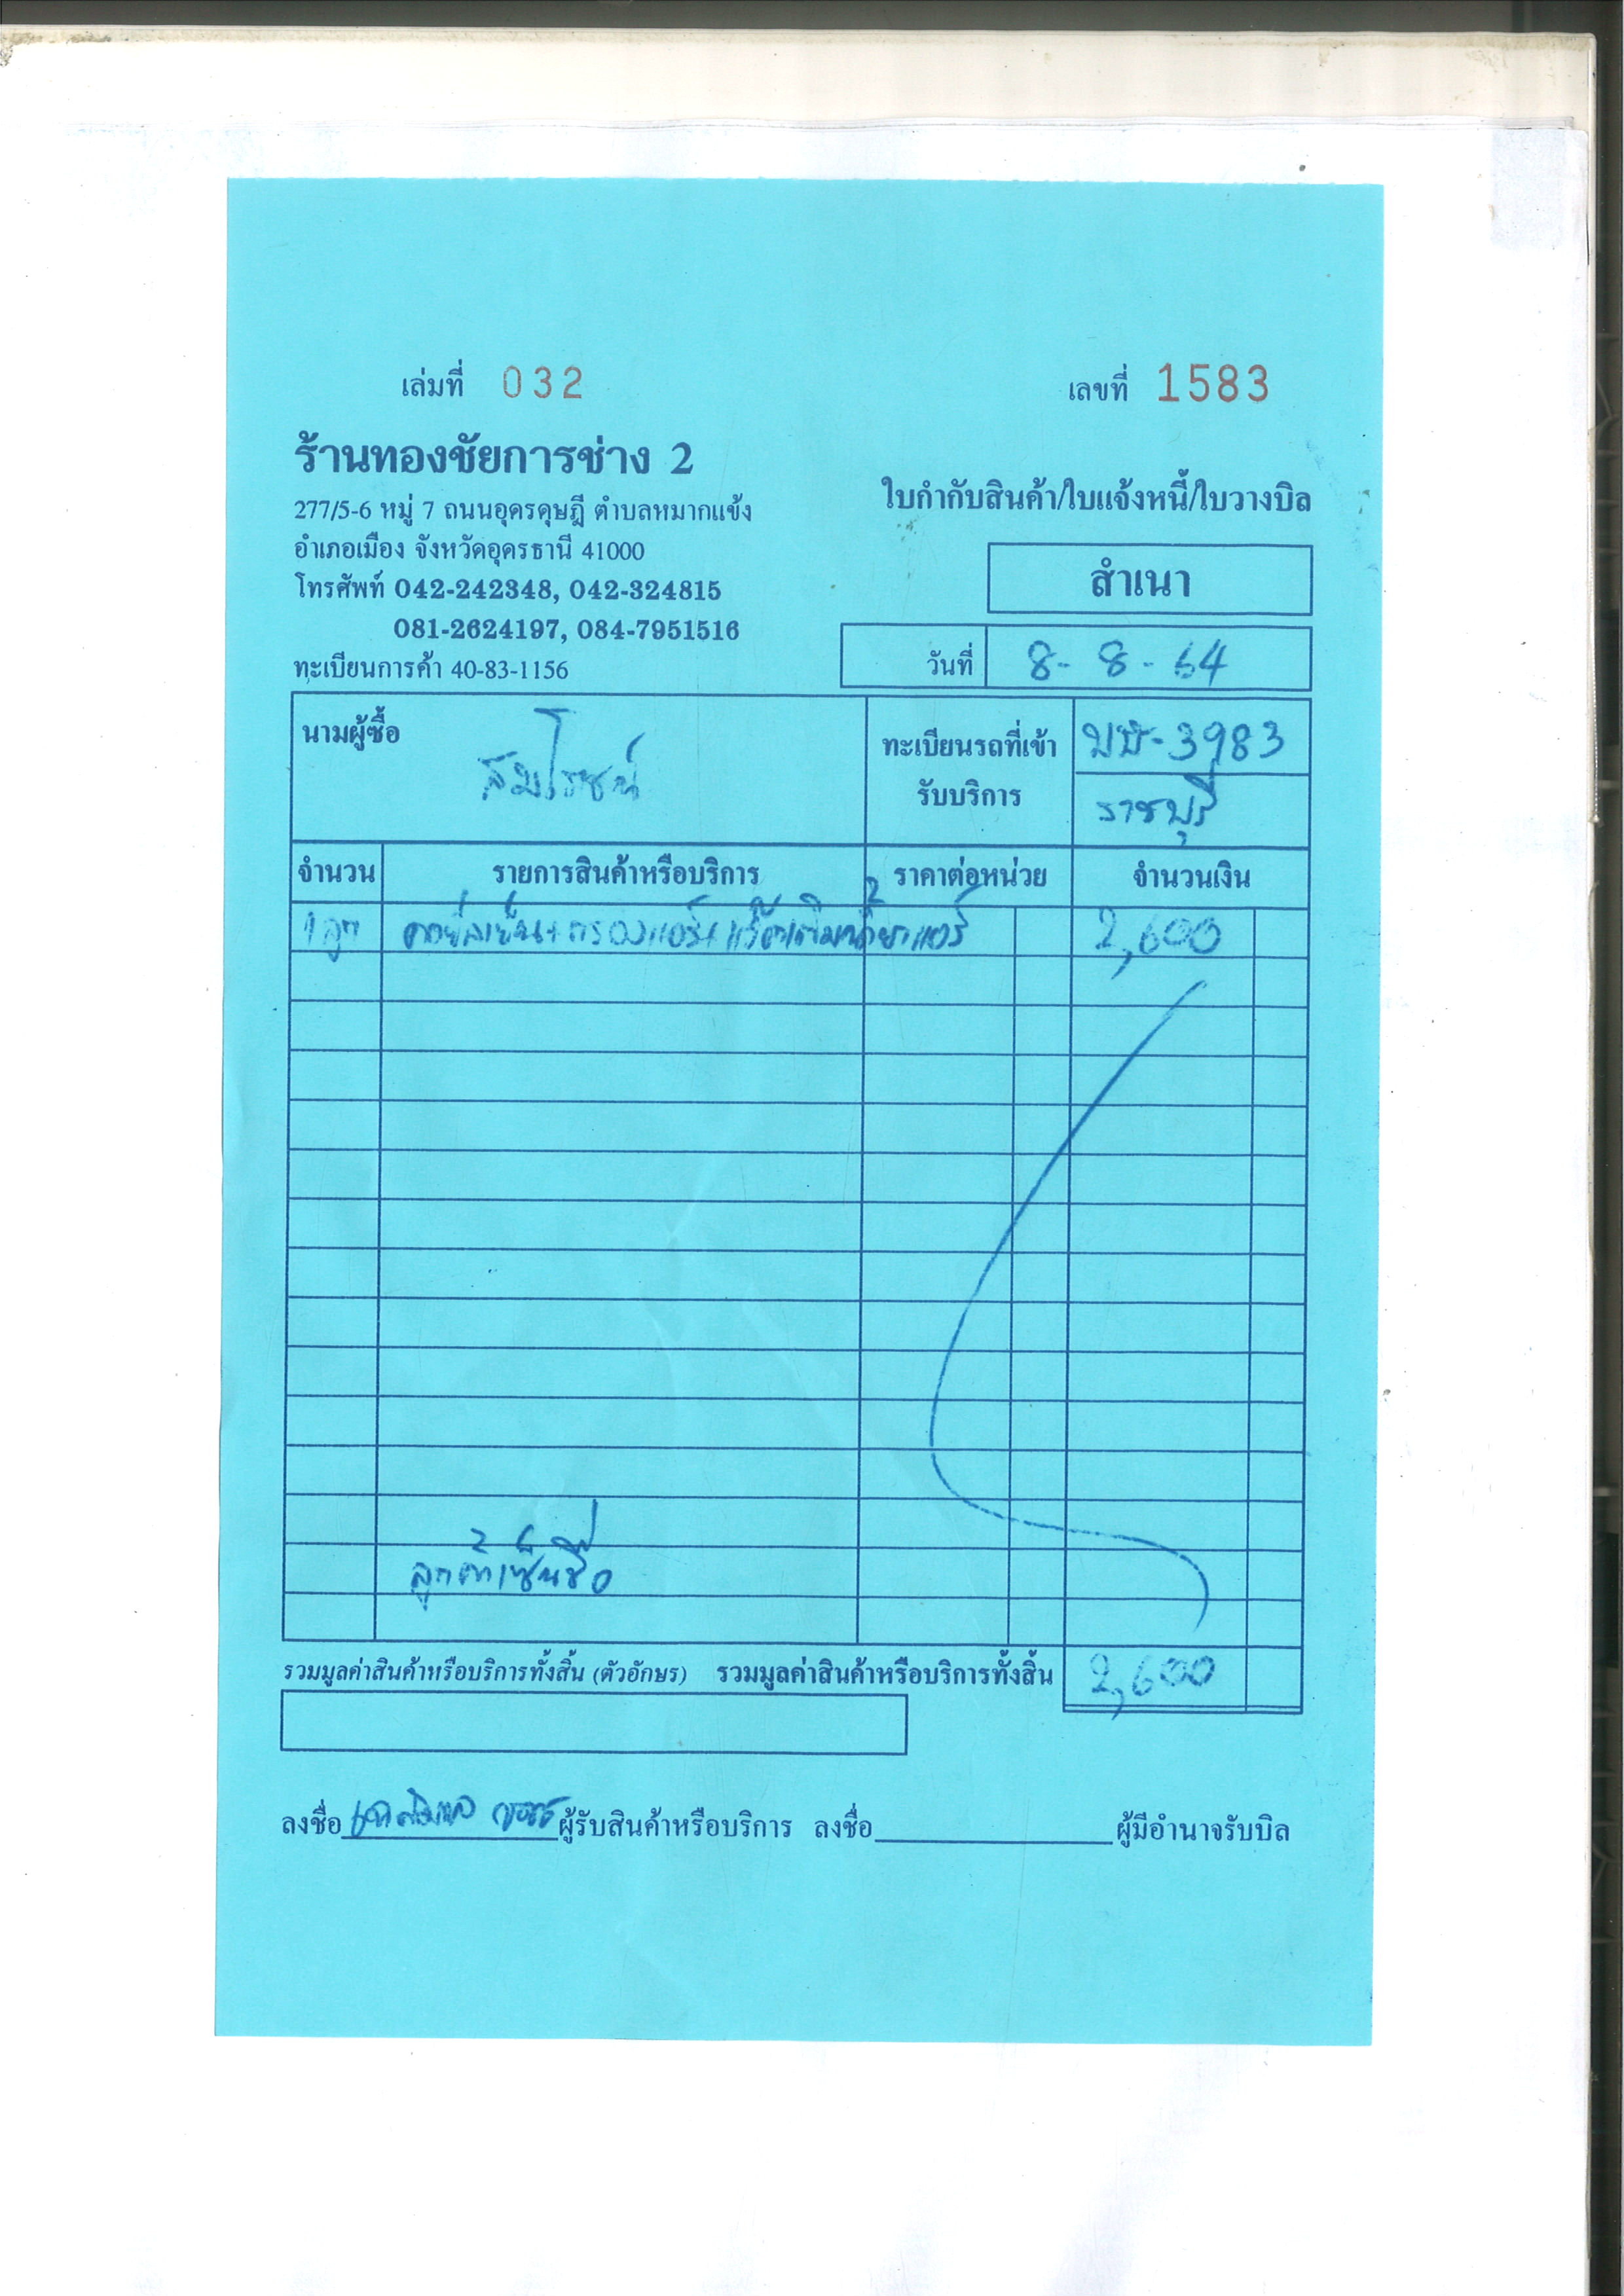 เล่มที่ 032
เลขที่ 1583
ร้านทองชัยการช่าง 2
277/5-6 หมู่ 7 ถนนอุดรดุษฎี ตำบลหมากแข้ง
อำเภอเมือง จังหวัดอุดรธานี 41000
โทรศัพท์ 042-242348, 042-324815
081-2624197, 084-7951516
ทะเบียนการค้า 40-83-1156
ใบกำกับสินค้า/ใบแจ้งหนี้/ใบวางบิล
สำเนา
วันที่ 8-8-64
นามผู้ซื้อ
สมโรชน์
ทะเบียนรถที่เข้า
รับบริการ
-3983
ราชบุรี
จำนวน รายการสินค้าหรือบริการ ราคาต่อหน่วย จำนวนเงิน
1 ลูก คอยล์เย็น+กรองแอร์+ เติมน้ำยาแอร์ 2,600
ลูกค้าเซ็นชื่อ
รวมมูลค่าสินค้าหรือบริการทั้งสิ้น (ตัวอักษร) รวมมูลค่าสินค้าหรือบริการทั้งสิ้น 2,600
ลงชื่อ ผู้รับสินค้าหรือบริการ ลงชื่อ ผู้มีอำนาจรับบิล